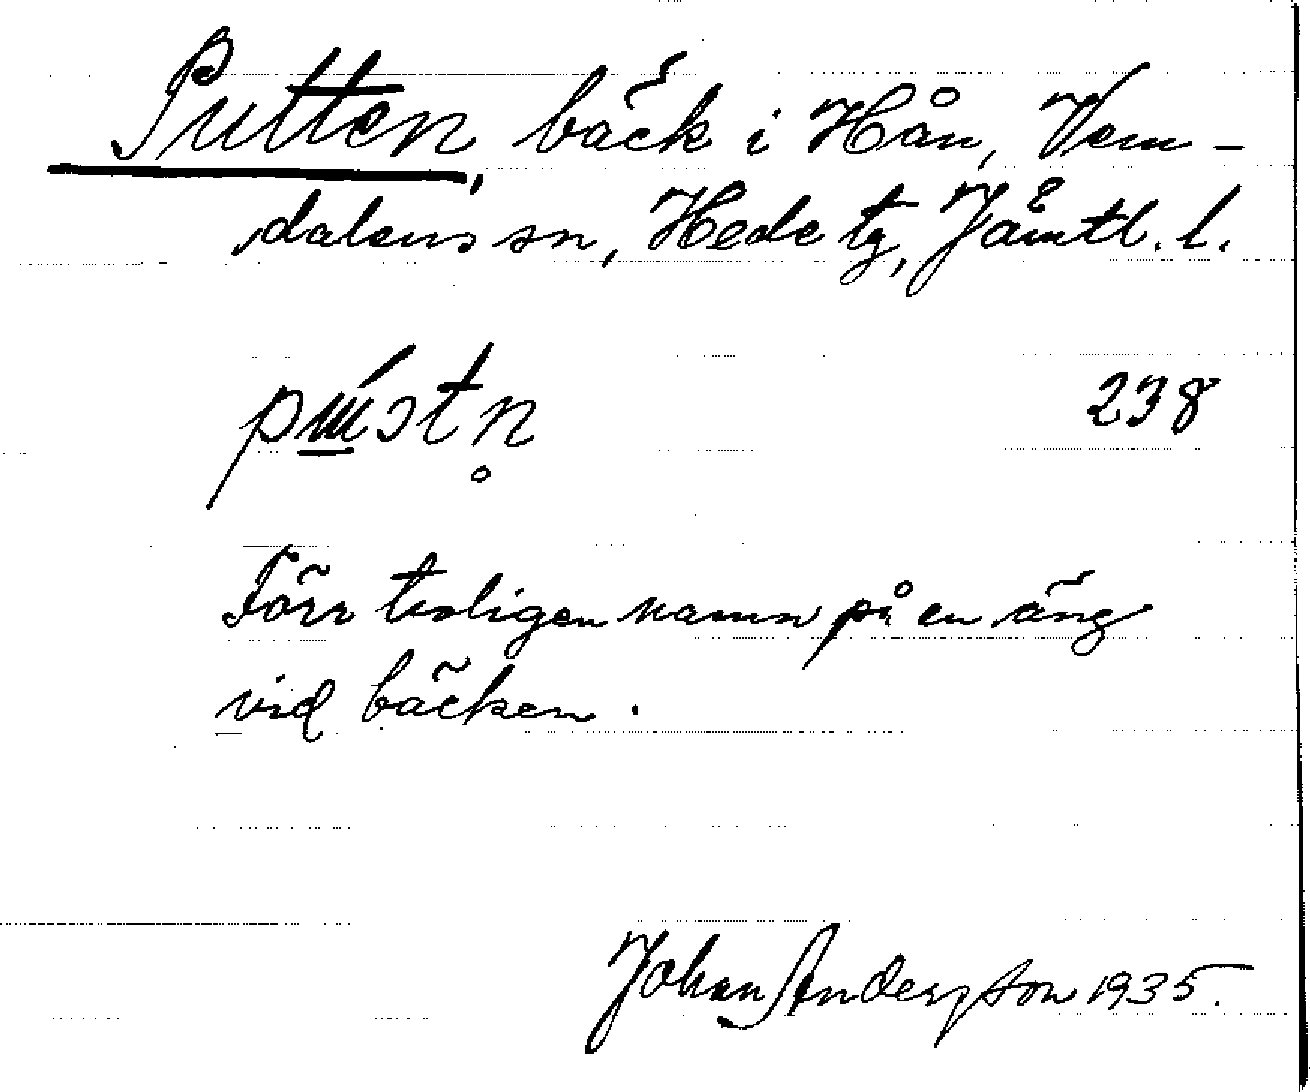 Putten, bäck i Hån, Vem-
dalens sn, Hede tg, Jämtl. l.
238
Förr troligen namn på en äng
vid bäcken.
Johan Anderson 1935.